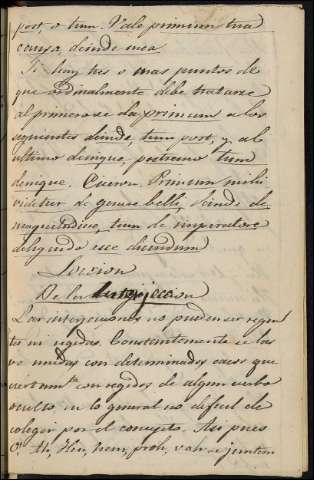 post, o tum. Vale primum tua
causa, deinde mea.
Si hay tres o mas puntos de
que ordinalmente debe tratarse
al primero se da primum a los
siguientes deinde, tum post, y al
ultimo denique, postremo tum
denique. Ciceron. Primum mihi
videtur de genere belli, deinde de
magnitudine, tum de imperatore
deligendo esse dicendum
Leccion
De la interjeccion
Las interjeciones no pueden ser regentes
ni regidas. Constantemente se las
ve unidas con determinados casos que
ciertamte. son regidos de algun verbo
oculto en lo general no dificil de
colegir por el concepto. Asi pues
O, ah, Heu, hem, proh, vah se juntan